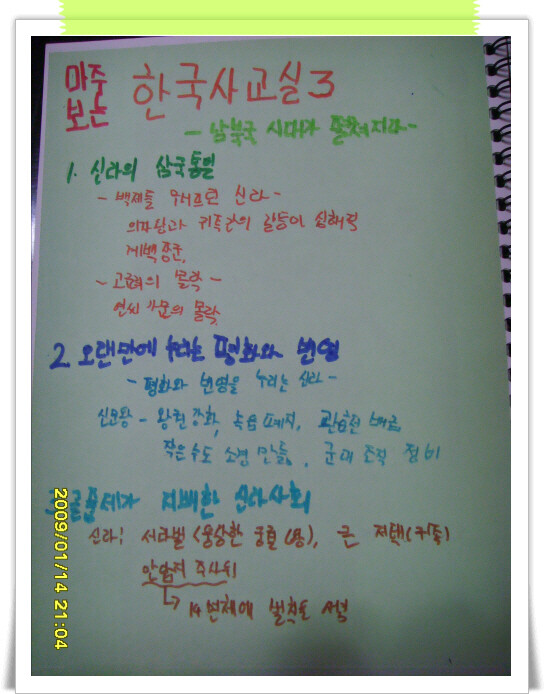 마주보는 한국사교실3
- 남북국 시대가 펼쳐지다 -
1. 신라의 삼국통일
- 백제를 무너뜨린 신라 -
의자왕과 귀족간의 갈등이 심해져
계백장군,
- 고구려의 몰락 -
연씨 가문의 몰락,
2. 오랜만에 누리는 평화와 번영
- 평화와 번영을 누리는 신라 -
신문왕 - 왕권 강화, 녹읍 폐지, 관습헌
작은수도 소경 만듦, 군대 조직 정비
골품제가 지배한 신라사회
신라: 서라벌 (웅장한 궁궐 (왕), 큰 저택(귀족)
안압지 주사위
→ 14면체에 벌칙도 서
2009/01/14 21:04